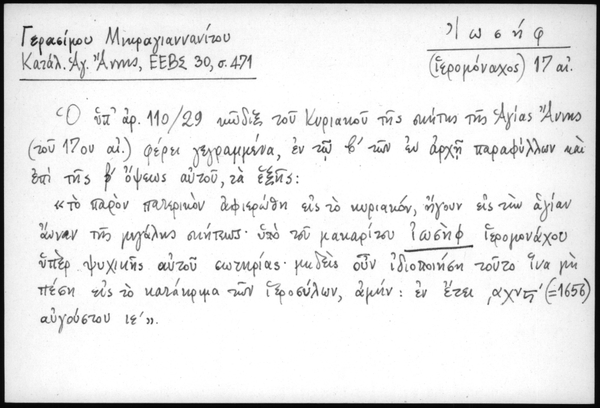 Γερασίμου Μικραγιαννανίτου
Κατάλ. Ἁγ. Ἄννης, ΕΕΒΣ 30, σ. 471
Ἰωσήφ
(ἱερομόναχος) 17 αἰ.
Ὁ ὑπ' ἀρ. 110/29 κῶδιξ τοῦ Κυριακοῦ τῆς σκήτης τῆς Ἁγίας Ἄννης
(τοῦ 17ου αἰ.) φέρει γεγραμμένα, ἐν τῷ β' τῶν ἐν ἀρχῇ παραφύλλων καὶ
ἐπὶ τῆς β' ὄψεως αὐτοῦ, τὰ ἑξῆς:
«τὸ παρὸν πατερικὸν ἀφιερώθη εἰς τὸ κυριακόν, ἤγουν εἰς τὴν ἁγίαν
ἄνναν τῆς μεγάλης σκήτεως· ὑπὸ τοῦ μακαρίτου ἰωσὴφ ἱερομονάχου
ὑπὲρ ψυχικῆς αὐτοῦ σωτηρίας· μηδεὶς οὖν ἰδιοποιήση τοῦτο ἵνα μὴ
πέση εἰς τὸ κατάκριμα τῶν ἱεροσύλων, ἀμήν: ἐν ἔτει ͵αχνϛ' (=1656)
αὐγούστου ιε'».